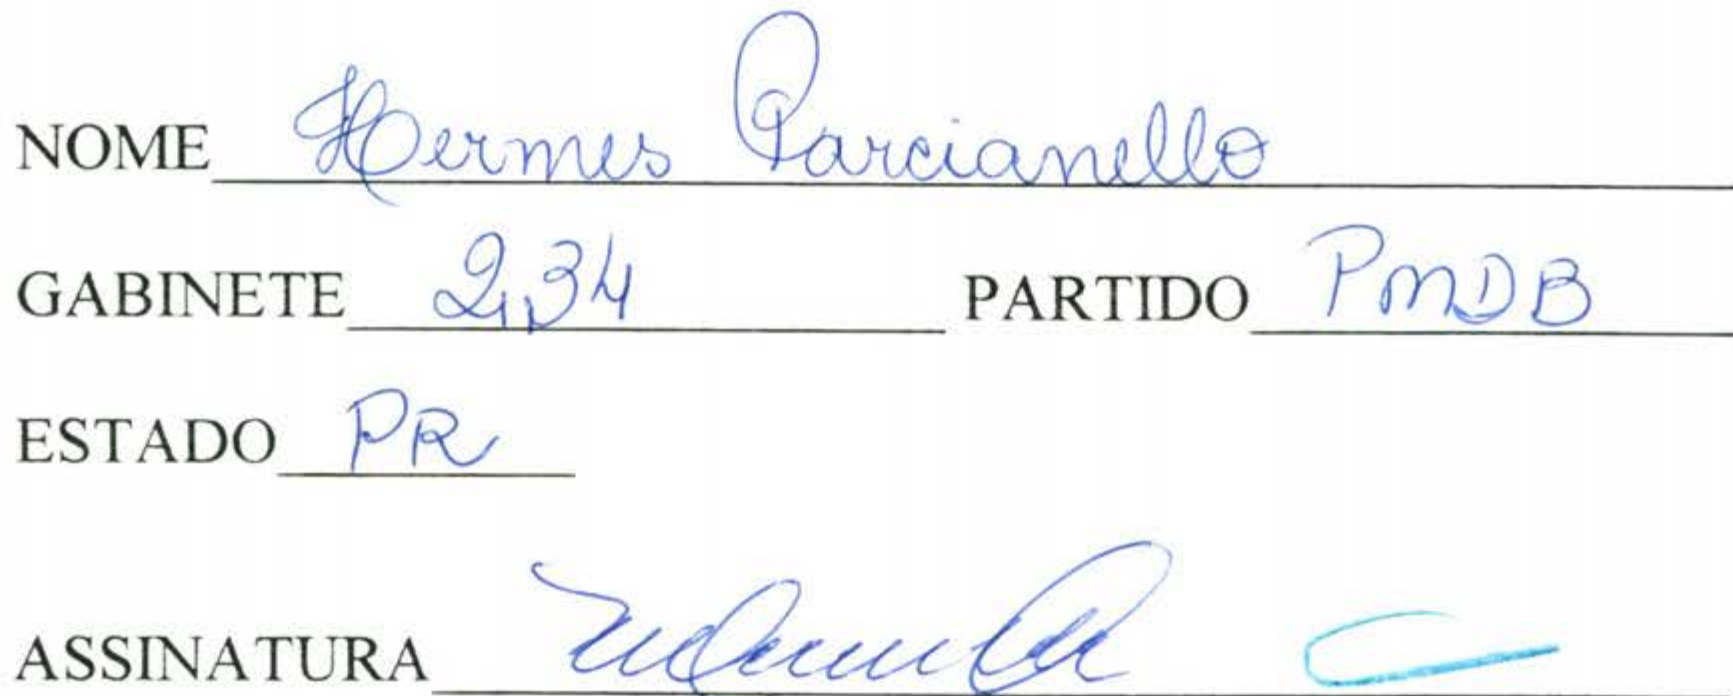 NOME Hermes Parcianello
GABINETE 234 PARTIDO PMDB
ESTADO PR
ASSINATURA